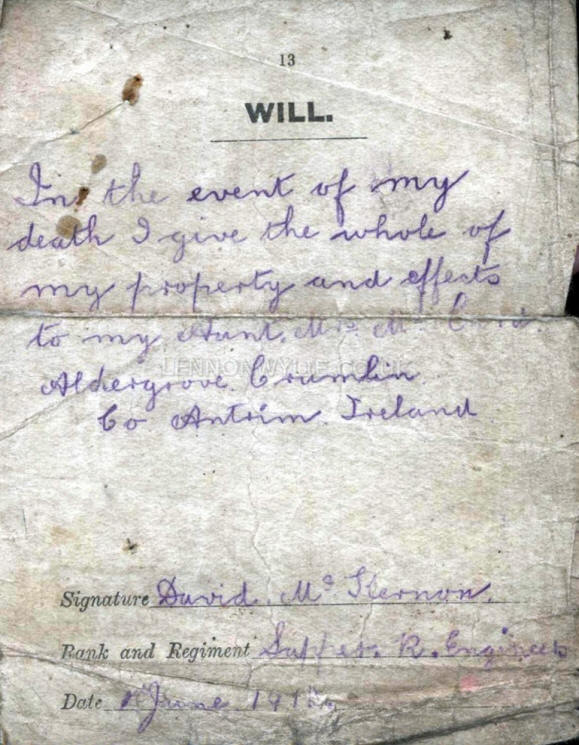 13
WILL.
In the event of my
death I give the whole of
my property and effects
to my Aunt. Mrs Mc
LENNONWYLIE.CO.UK
Aldergrove. Crumlin
Co Antrim. Ireland
Signature David. Mc
Rank and Regiment Sapper. R. Engineers
Date June